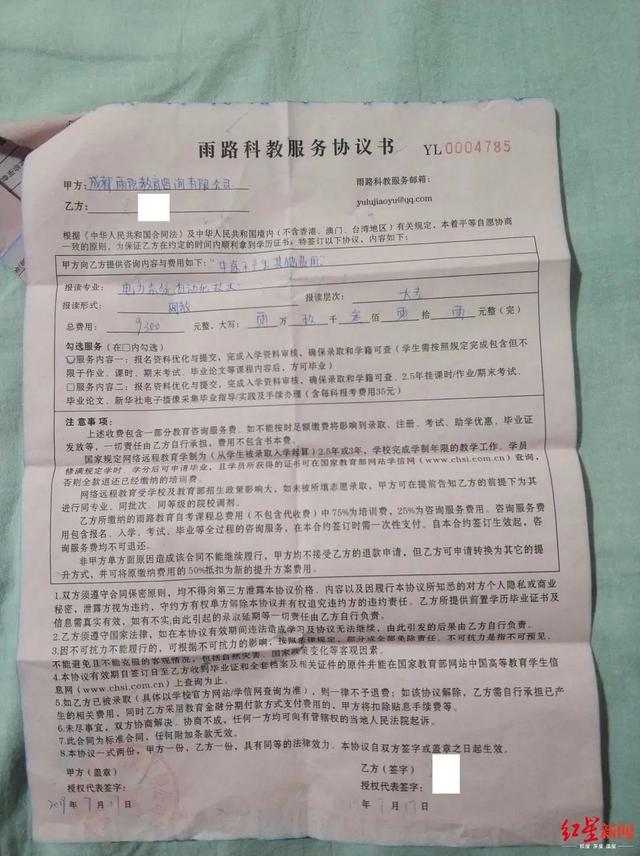 雨路科教服务协议书 YL0004785
甲方：成都雨路教育咨询有限公司 雨路科教服务邮箱：
乙方： yulujiaoyu@qq.com
根据《中华人民共和国合同法》及中华人民共和国境内（不含香港、澳门、台湾地区）有关规定，本着平等自愿协商
一致的原则，为保证乙方在约定的时间内顺利拿到学历证书；特签订以下协议，内容如下：
甲方向乙方提供咨询内容与费用如下：中途不产生其他费用
报读专业：电力系统自动化技术
报读形式：网教 报读层次：大专
总费用：9300 元整，大写： 万 玖 仟 叁 佰 拾 元整（完）
勾选服务（在□内勾选）
□服务内容一：报名资料优化与提交，完成入学资料审核，确保录取和学籍可查（学生需按照规定完成包含但不
限于作业、课时、期末考试、毕业论文等课程内容后，方可毕业）
□服务内容二：报名资料优化与提交，完成入学资料审核，确保录取和学籍可查、2.5年挂课时/作业/期末考试、
毕业论文、新华社电子摄像采集毕业指导/实践及手续办理（含每科报考费用35元）
注意事项：
上述收费包含一部分教育咨询服务费。如不能按时足额缴费将影响到录取、注册、考试、助学优惠、毕业证
发放等，一切责任由乙方自行承担，费用不含书本费。
国家规定网络远程教育学制为（从学生被录取入学起算）2.5年或3年，学校完成学制年限的教学工作、学员
修满规定学时、学分后可申请毕业，且学员所获得的证书可在国家教育部网站学信网（www.chsi.com.cn）查询，
否则全款退还已经缴纳的培训费。
网络远程教育受学校及教育部招生政策影响大，如未被所填志愿录取，甲方可在提前告知乙方的前提下为其
进行同专业、同批次、同等级的院校调剂。
乙方所缴纳的雨路教育自考课程总费用（不包含代收费）中75%为培训费，25%为咨询服务费。咨询服务费
用包含报名、入学、考试、毕业等全过程的咨询服务，在本合约签订时需一次性支付。自本合约签订生效起，咨
询服务费均不可退还。
非甲方单方面原因造成该合同不能继续履行，甲方均不接受乙方的退款申请，但乙方可申请转换为其它的提
升方式，并可将原缴纳费用的50%抵扣为新的提升方案费用。
1.双方须遵守合同保密原则，均不得向第三方泄露本协议价格、内容以及因履行本协议所知悉的对方个人隐私或商业
秘密，泄露方视为违约，守约方有权单方解除本协议并有权追究违约方的违约责任。乙方所提供前置学历毕业证书及
信息需真实有效，如有不实，由此引起的录取延期等一切责任由乙方自行负责。
2.乙方须遵守国家法律，如在本协议有效期间违法造成学习及协议无法继续，由此引发的后果由乙方自行负责。
3.因不可抗力不能履行的，可根据不可抗力的影响，按照法律规定，部分或全部免除责任，不可抗力是指不可预见、
不能避免且不能克服的客观情况，包括自然灾害、国家政策变化等客观因素。
4.本协议有效期自签订日至乙方收到毕业证和全套档案及相关证件的原件并能在国家教育部网站中国高等教育学生信
息网（www.chsi.com.cn）上查询为止。
5.如乙方已被录取（具体以学校官方网站/学信网查询为准），则一律不予退费；如该协议解除，乙方需自行承担已产
生的相关费用，同时乙方采用教育金融分期付款方式支付费用的，甲方将扣除贴息手续费等。
6.未尽事宜，双方协商解决。协商不成，任何一方均可向有管辖权的当地人民法院起诉。
7.此合同为标准合同，任何附加条款无效。
8.本协议一式两份，甲方一份，乙方一份，具有同等的法律效力。本协议自双方签字或盖章之日起生效。
甲方（盖章） 乙方（签字）
授权代表签字： 授权代表签字：
年7月17日 年7月17日
红星新闻
权度 深度 温度